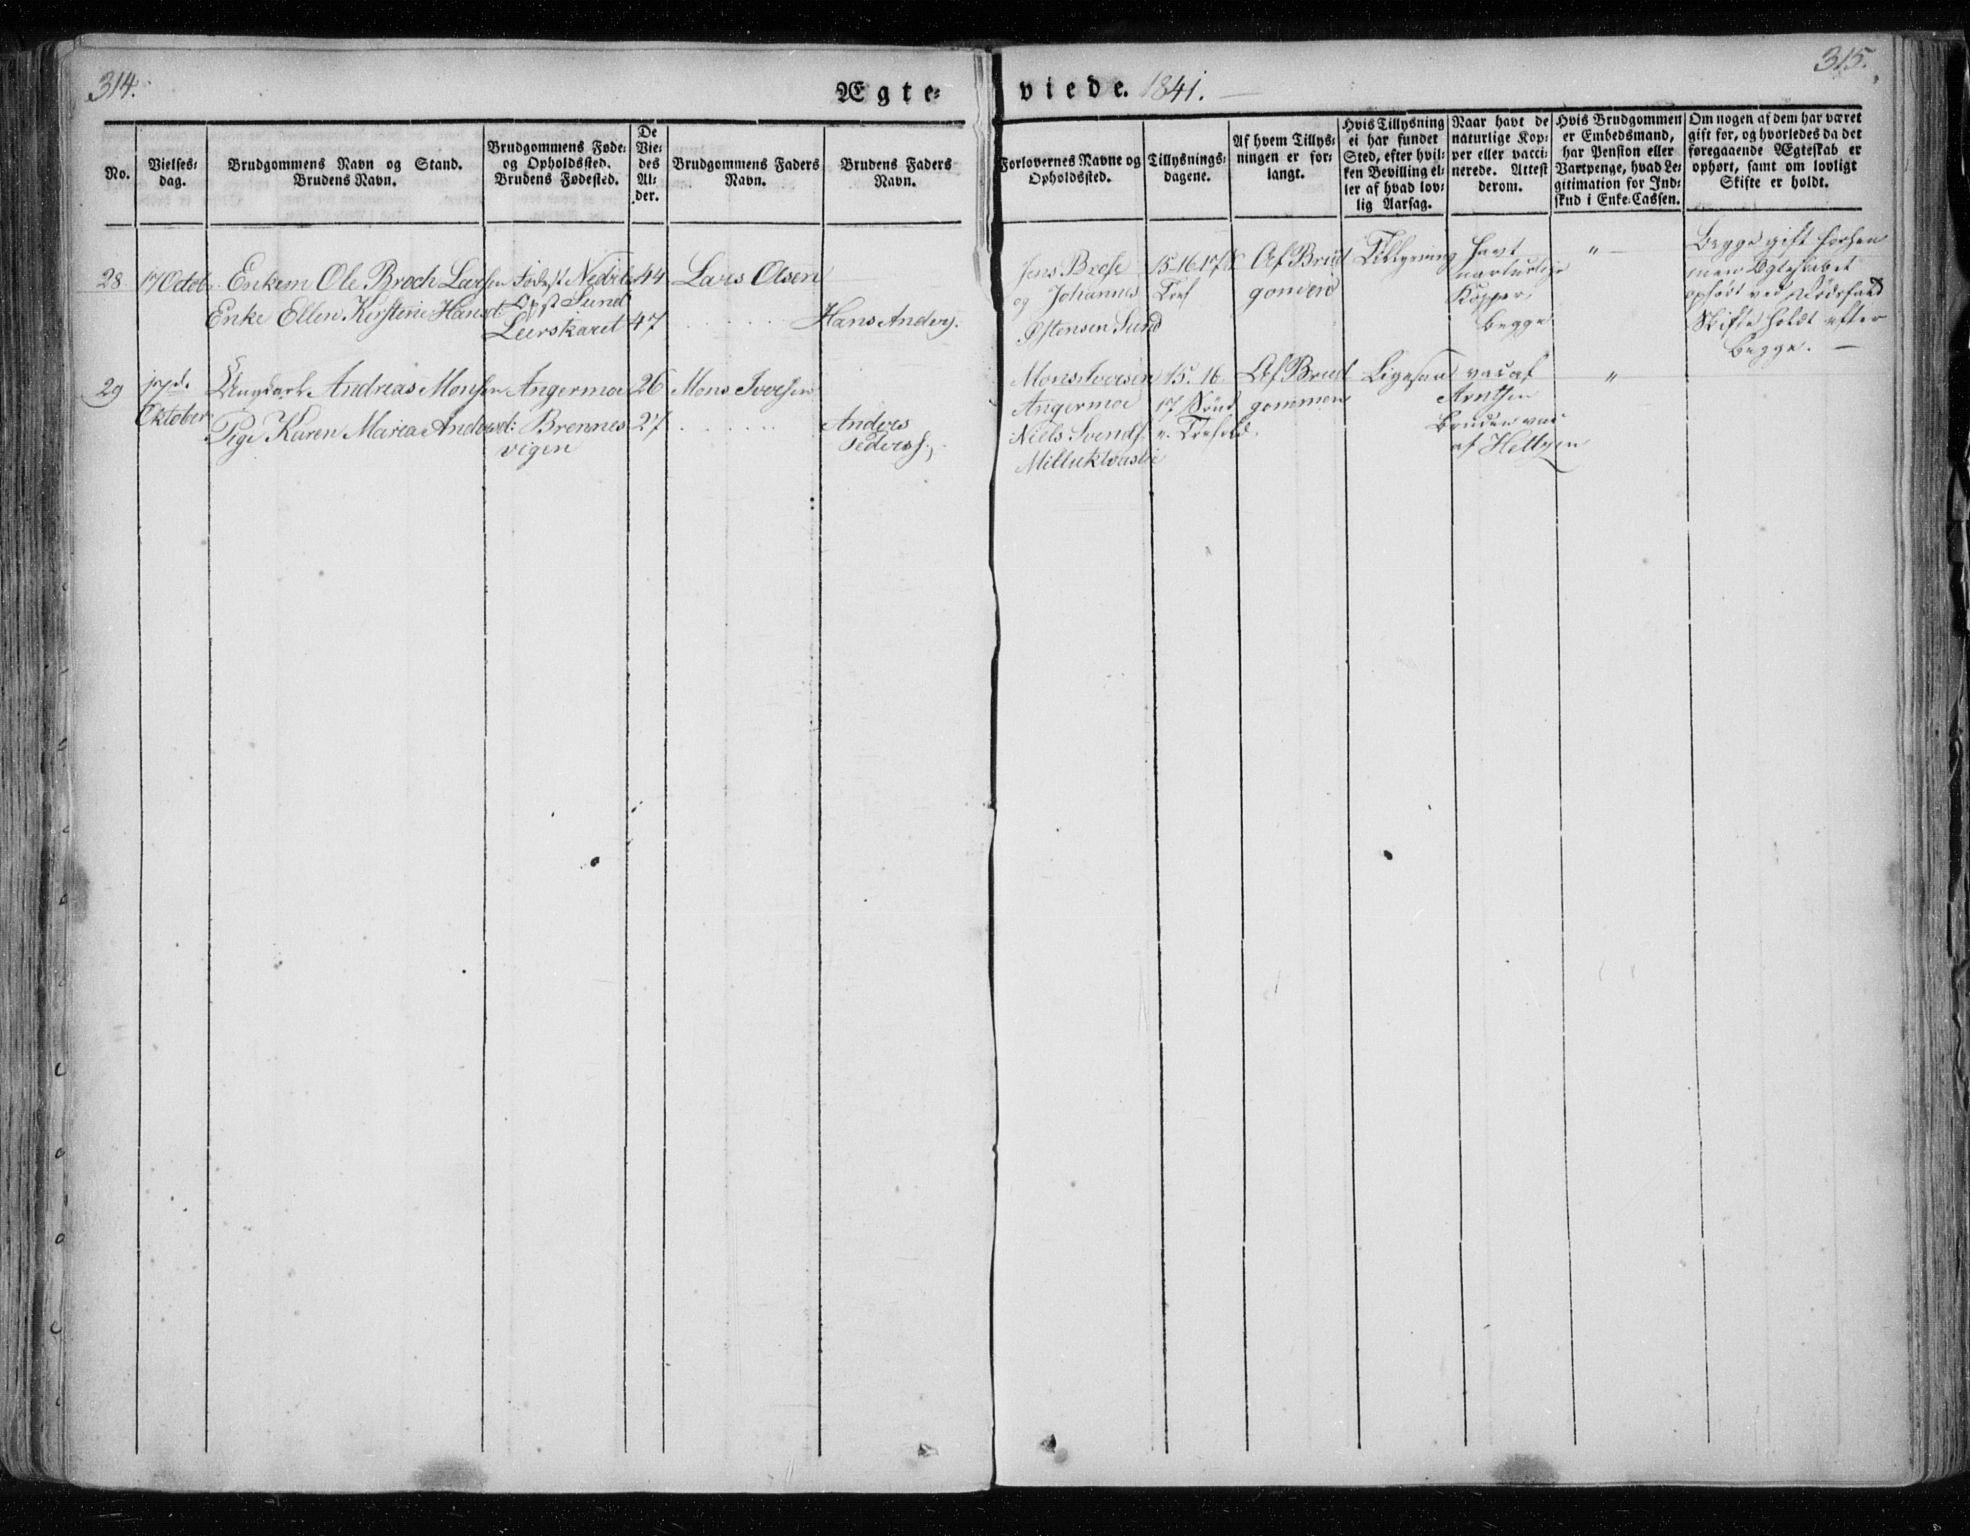 314.
315.
Ægte-
viede. 1841.
No.
Vielses-
dag.
Brudgommens Navn og Stand.
Brudens Navn.
Brudgommens Føde-
og Opholdssted.
Brudens Fødested.
De
Vie-
des
Al-
der.
Brudgommens Faders
Navn.
Brudens Faders
Navn.
Forlovernes Navne og
Opholdssted.
Tillysnings-
dagene.
Af hvem Tillys-
ningen er for-
langt.
Hvis Tillysning
ei har fundet
Sted, efter hvil-
ken Bevilling el-
ler af hvad lov-
lig Aarsag.
Naar havt de
naturlige Kop-
per eller vacci-
nerede. Attest
derom.
Hvis Brudgommen
er Embedsmand,
har Pension eller
Vartpenge, hvad Le-
gitimation for Ind-
skud i Enke-Cassen.
Om nogen af dem har været
gift før, og hvorledes da det
foregaaende Ægteskab er
ophørt, samt om lovligt
Skifte er holdt.
28
17 Octob.
Enkem Ole Broch Larsen
Enke Ellen Kirstine Hansd:
Sund
Leerskaret
44
47
Lars Olsen
Hans Anders.
Jens
og Johannes
Østensen Sund
15 16 17
Af Brud
gommen
havt
naturlige
Kopper
begge
"
Begge gift forhen
men Egteskabet
ophørt ved Dødsfald
Skifte holdt efter
Begge.
29
17de
Oktober
Ungkarl Andreas Monsen
Pige Karen Maria Andersd:
Angermoe
Brennes
vigen
26
27
Mons Iversen
Anders
Peders.
Mons Iversen
Angermoe
Niels Svends.
15. 16.
17
Af Brud
gommen
Ligesaa
vac af
Arntsen
Bruden vac
af Heltzen
"